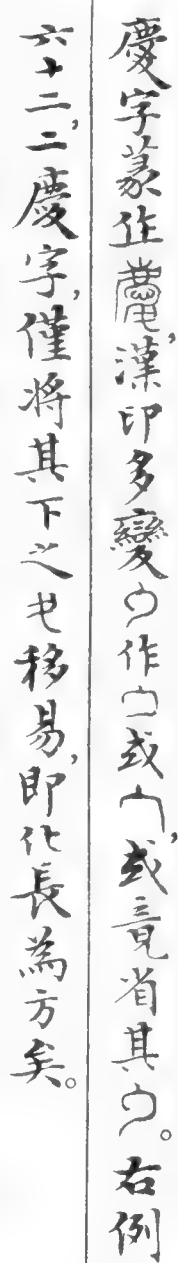 慶字篆作，漢印多變作或，或竟省其。右例
六十二，二慶字，僅將其下之也移易，即化長為方矣。